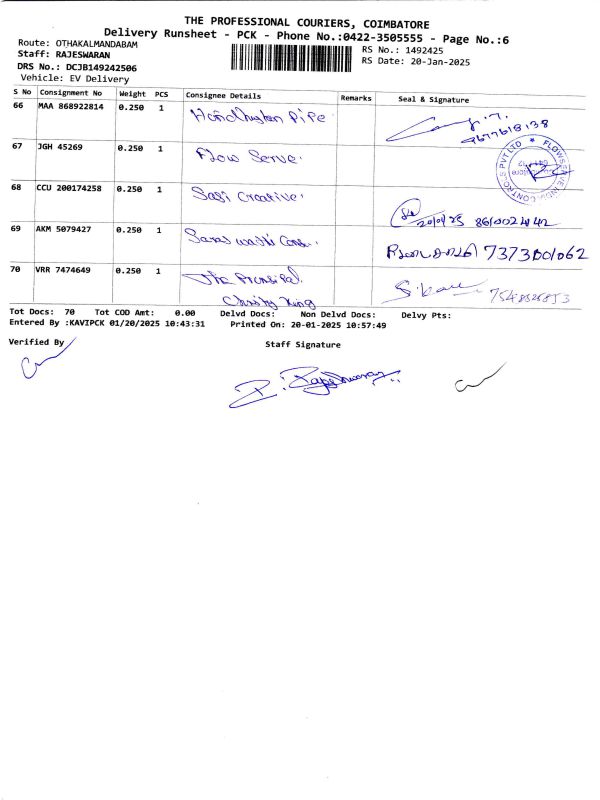 THE PROFESSIONAL COURIERS, COIMBATORE
Delivery Runsheet - PCK - Phone No.:0422-3505555 - Page No.:6
Route: OTHAKALMANDABAM
Staff: RAJESWARAN
DRS No.: DCJB149242506
Vehicle: EV Delivery
RS No.: 1492425
RS Date: 20-Jan-2025
S No Consignment No Weight PCS Consignee Details Remarks Seal & Signature
66 MAA 868922814 0.250 1 Pipe
9677618138
67 JGH 45269 0.250 1 Flow Serve.
FLOWSERVE INDIA CONTROLS PVT LTD
68 CCU 200174258 0.250 1 Sasi Creative.
20/01/25
69 AKM 5079427 0.250 1 Saraswathi Cons.
7373001062
70 VRR 7474649 0.250 1 The Prinsipal.
Christy King
Tot Docs: 70 Tot COD Amt: 0.00 Delvd Docs: Non Delvd Docs: Delvy Pts:
Entered By :KAVIPCK 01/20/2025 10:43:31 Printed On: 20-01-2025 10:57:49
Verified By Staff Signature